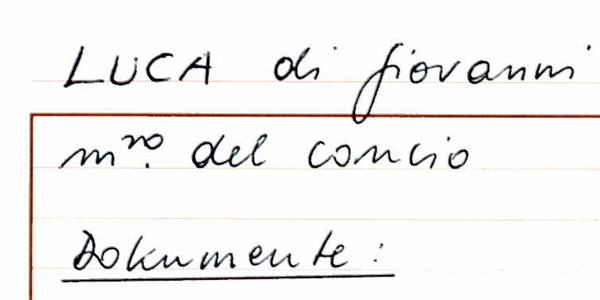 LUCA di Giovanni
mro. del concio
Dokumente: